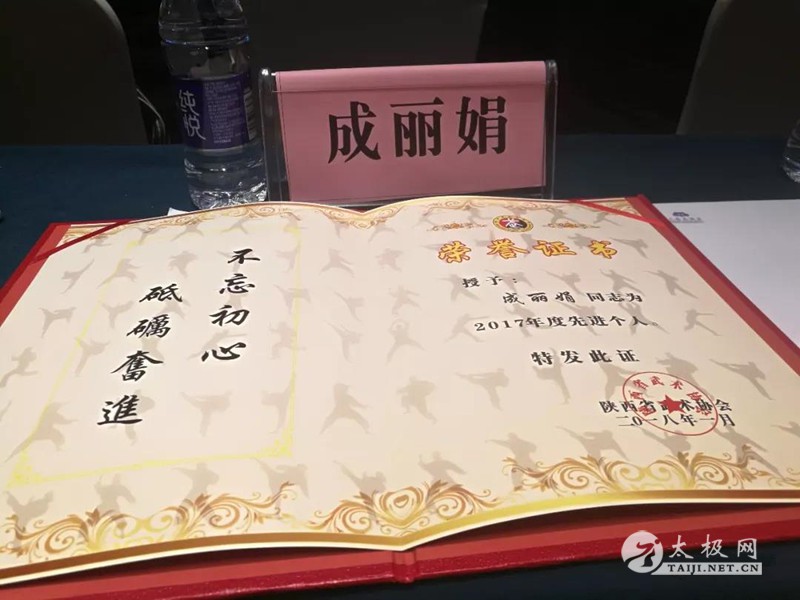 纯悦
成丽娟
不忘初心
砥礪奮進
荣誉证书
授予：
成丽娟 同志为
2017年度先进个人
特发此证
陕西省武术协会
二〇一八年一月
太极网
TAIJI.NET.CN